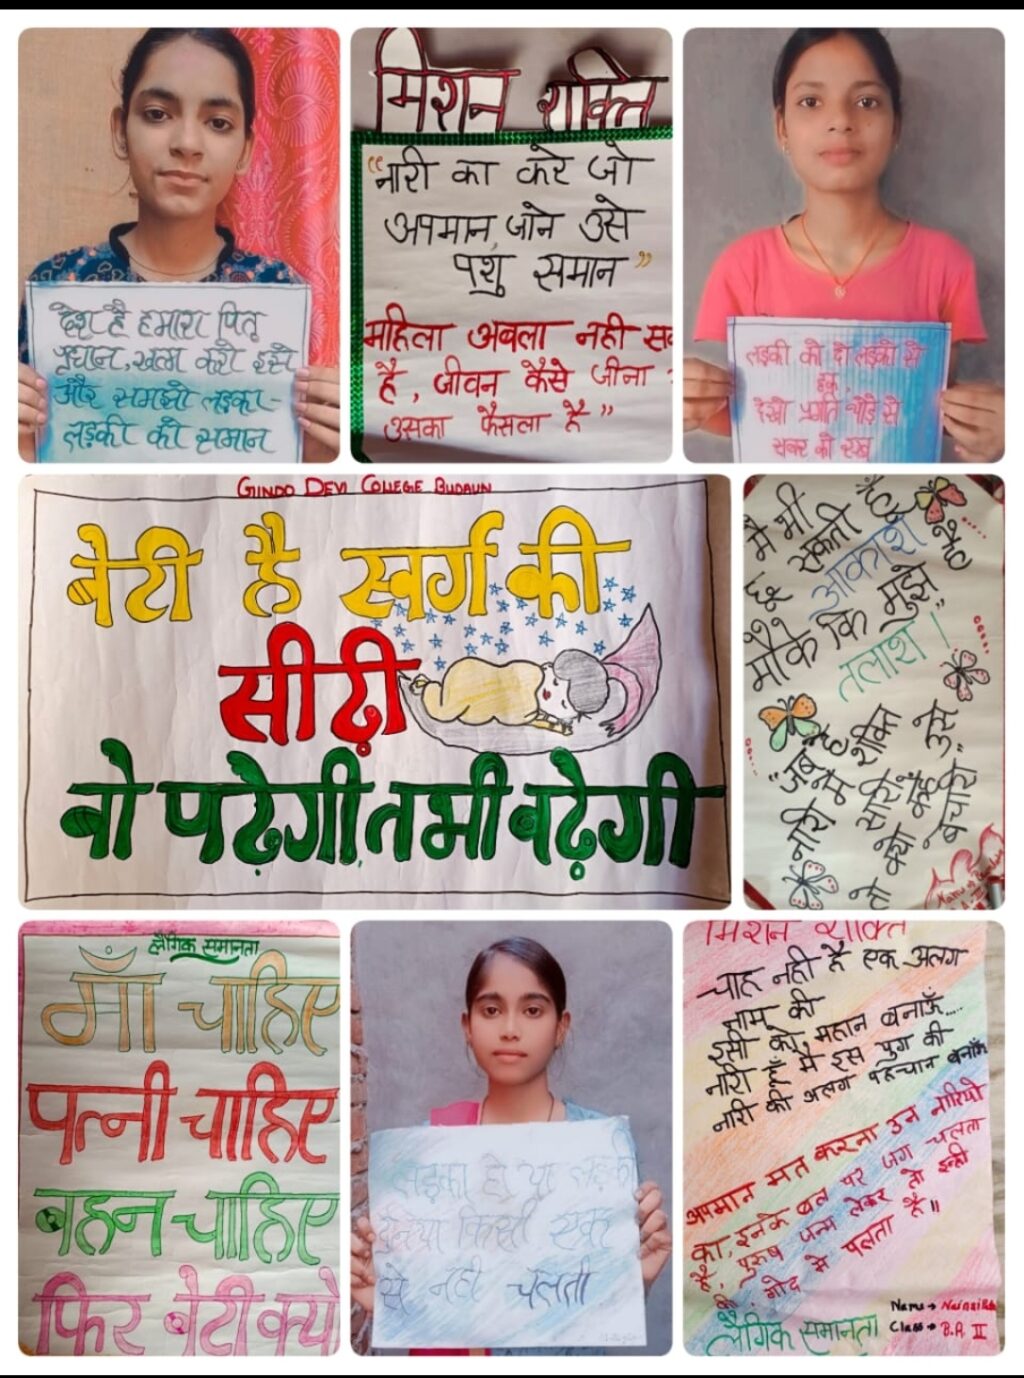 देश है हमारा पितृ
प्रधान, खत्म करो इसे
और समझो लड़का-
लड़की को समान
मिशन शक्ति
"नारी का करे जो
अपमान, जाने उसे
पशु समान"
महिला अबला नही
है, जीवन कैसे जीना
उसका फैसला है"
लड़की को दो लड़को से
हक,
देखो प्रगति चौड़े से
चक्र को रख
GINDO DEVI COLLEGE BUDAUN
बेटी है स्वर्ग की
सीढ़ी
वो पढ़ेगी, तभी बढ़ेगी
मै भी
छू सकती हूँ
आकाश
मौके कि मुझे है
तलाश!"
"जब है
नारी में शक्ति
सारी
तो क्यो कहें
बेचारी"
लैंगिक समानता
माँ चाहिए
पत्नी चाहिए
बहन चाहिए
फिर बेटी क्यो
लड़का हो या लड़की
दुनिया किसी एक
से नही चलती
मिशन शक्ति
चाह नही है एक अलग
नाम की
इसी को, महान बनाऊँ....
नारी हूँ मै इस युग की
नारी की अलग पहचान बनाऊँ
अपमान मत करना उन नारियो
का, इनके बल पर जग चलता
है, पुरुष जन्म लेकर तो इन्ही
की गोद मे पलता है॥
लैंगिक समानता
Name →
Class → B.A II